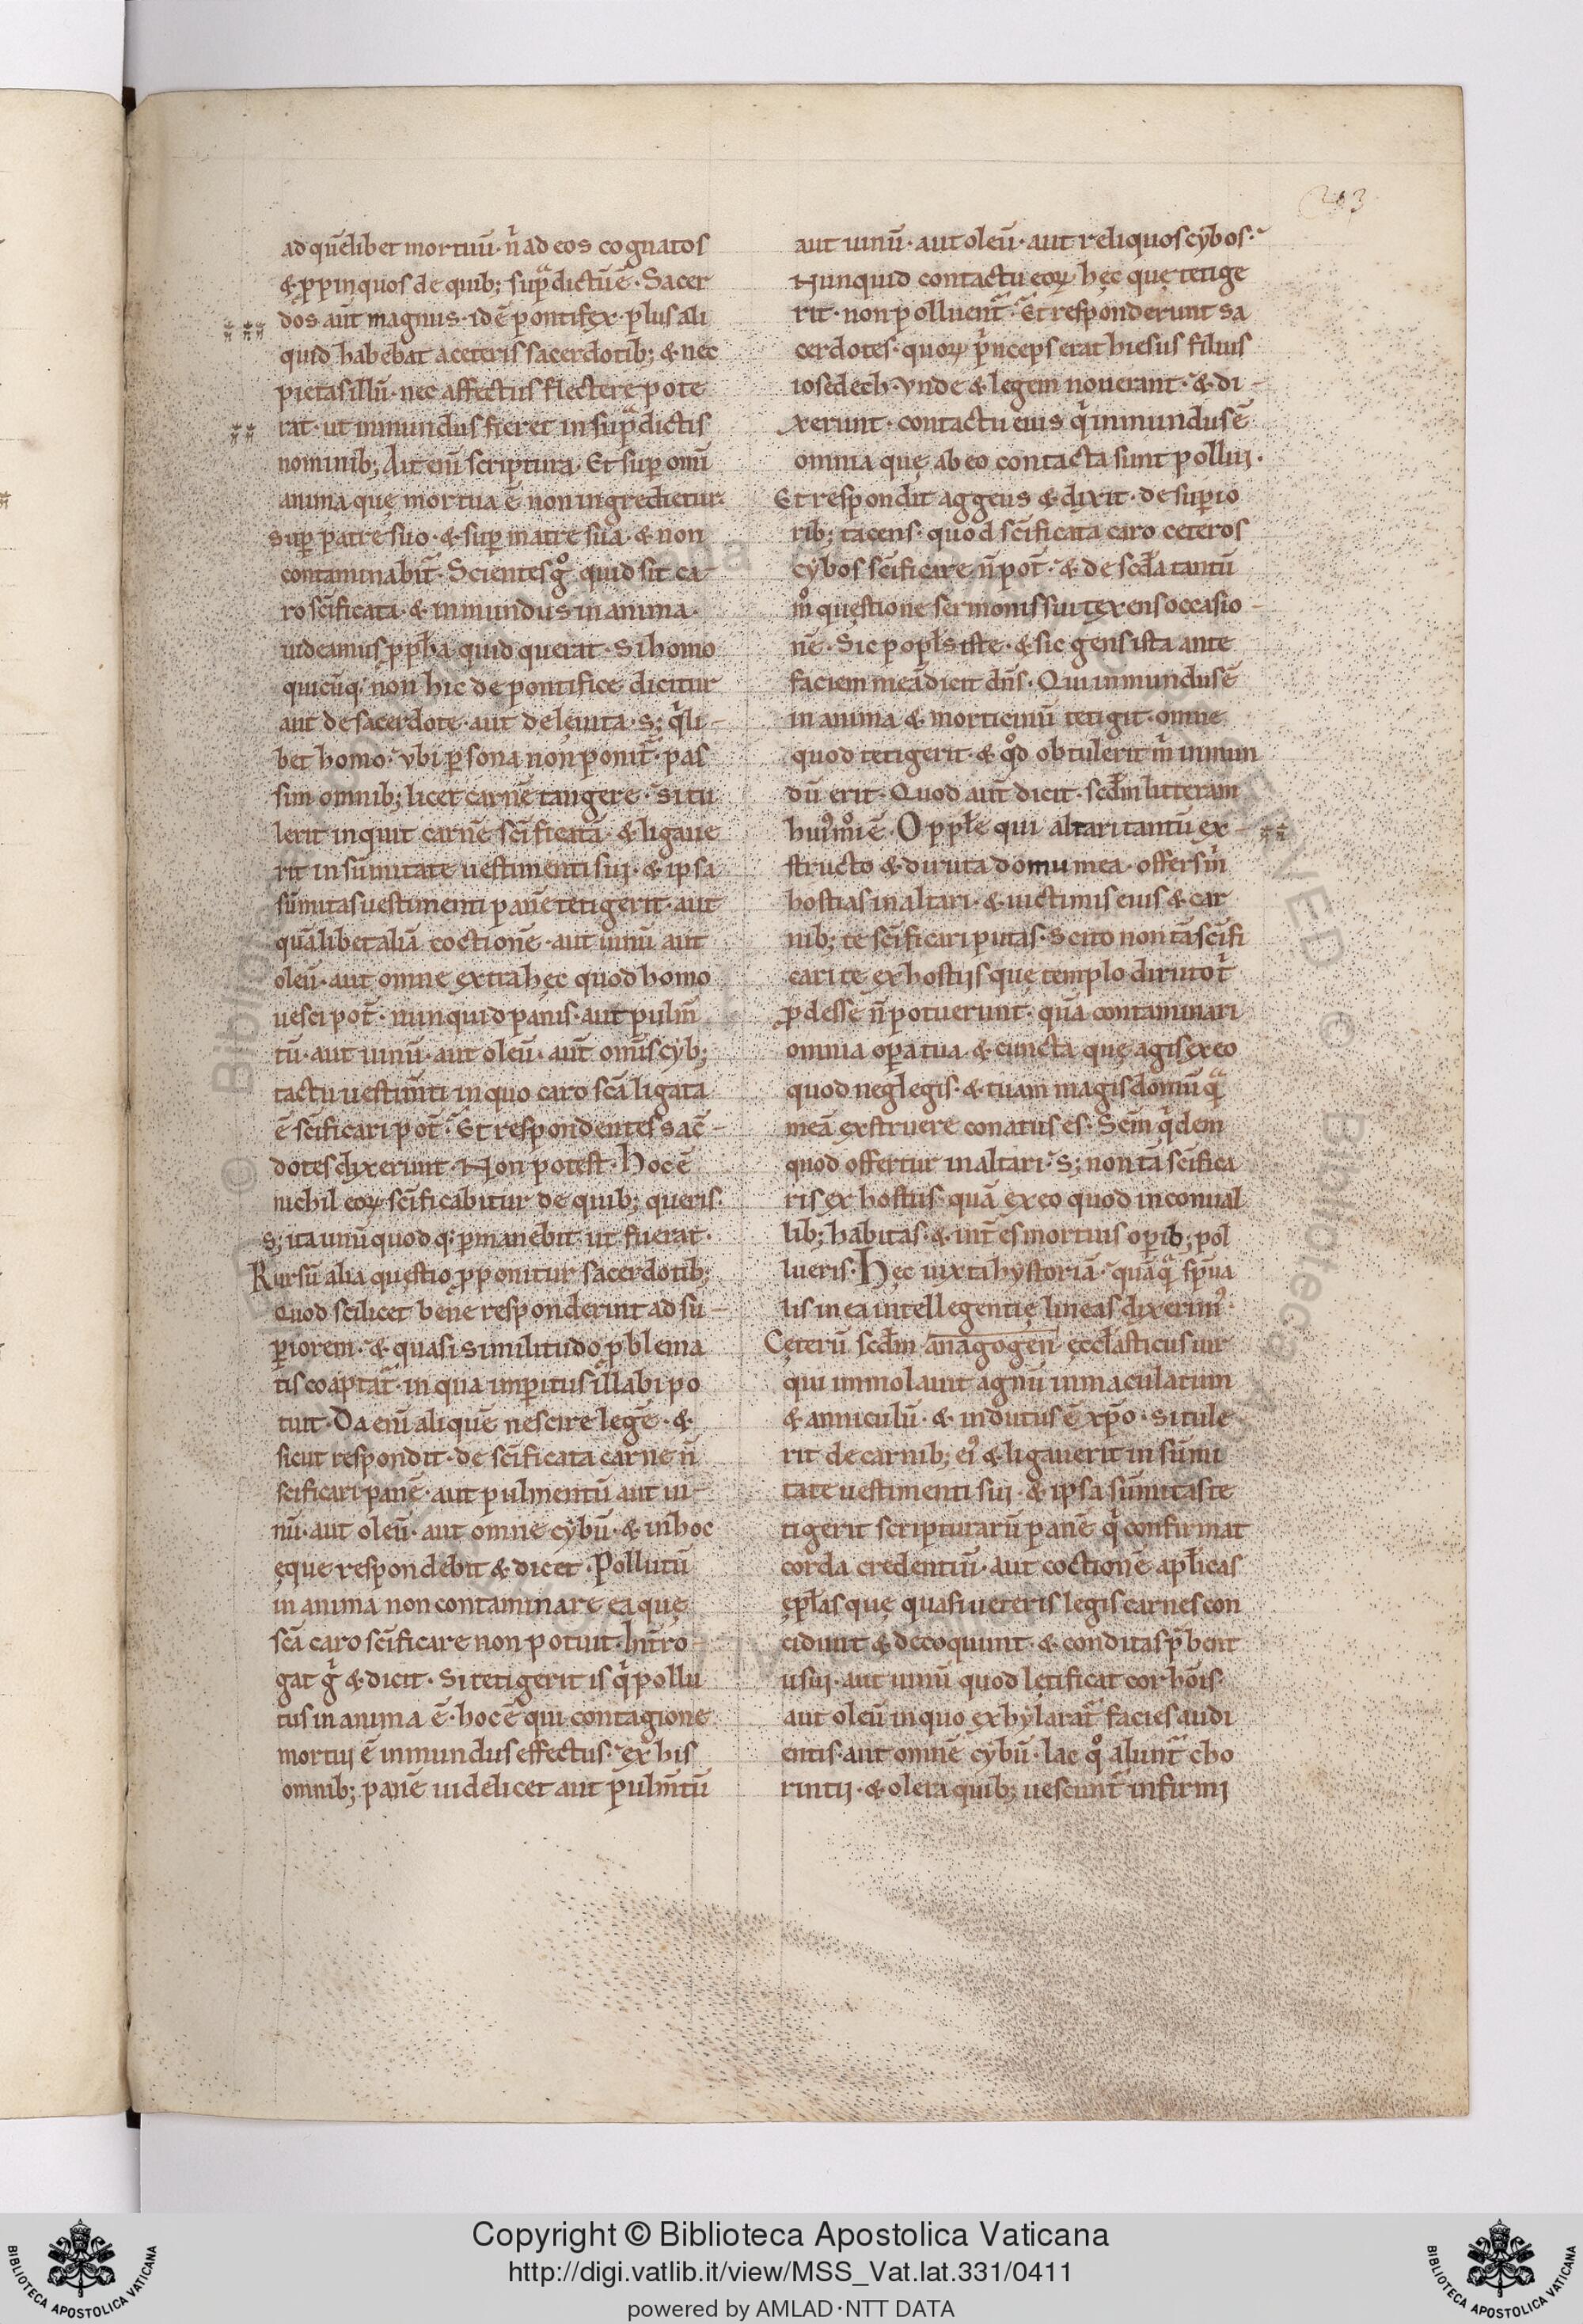 203
ad quēlibet mortuū· n̄ ad eos cognatos
& ꝓpinquos de quib; sup̄dictū ē· Sacer
dos aut̄ magnus· id ē pontifex· plus ali
quid habebat a ceteris sacerdotib; & nec
pietas illū· nec affectus flectere pote
rat· ut inmundus fieret in sup̄dictis
nominib; Ait enī scriptura· Et sup̱ omī
anima quę mortua ē non ingredietur·
sup̱ patre suo· & sup̱ matre sua· & non
contaminabit̄· Scientes gͦ quid sit ca
ro sc̄ificata· & inmundus in anima·
uideamus ꝓph̄a quid querat· Si homo
quicūq; non hic de pontifice dicitur
aut de sacerdote· aut de leuita· s; qͥli
bet homo· vbi ꝑsona non ponit̄· pas
sim omnib; licet carnē tangere· Si tu
lerit inquit carnē sc̄ificatā· & ligaue
rit in sūmitate uestimenti sui· & ipsa
sūmitas uestimenti panē tetigerit· aut
quālibet aliā coctionē· aut uinū aut
oleū· aut omne extra hęc quod homo
uesci pot̄· nunquid panis· aut pulm̄
tū· aut uinū· aut oleū· aut̄ om̄s cyb;
tactu uestim̄ti in quo caro sc̄a ligata
ē sc̄ificari pot̄· Et respondentes sac̄
dotes dixerunt· Non potest· Hoc ē
nichil eoꝝ sc̄ificabitur de quib; queris·
s; ita unū quodq; ꝑmanebit ut fuerat·
Rursū alia questio ꝓponitur sacerdotib;
Quod scilicet bene responderint ad su
ꝑiorem· & quasi similitudo ꝓblema
tis coaptat̄· in qua imꝑitus illabi po
tuit· Da enī aliquē nescire legē· &
sicut respondit· de sc̄ificata carne n̄
sc̄ificari panē· aut pulmentū aut ui
nū· aut oleū· aut omne cybū· & in hoc
ęque respondebit & dicet· Pollutū
in anima non contaminare ea quę
sc̄a caro sc̄ificare non potuit· Int̄ro
gat gͥ & dicit· Si tetigerit is qͥ pollu
tus in anima ē· hoc ē qui contagione
mortui ē inmundus effectus· ex his
omnib; panē uidelicet aut pulm̄tū
aut uinū· aut oleū· aut reliquos cybos·
Nunquid contactu eoꝝ hęc quę tetige
rit· non polluent̄· Et responderunt sa
cerdotes· quoꝝ pͥnceps erat hiesus filius
iosedech· vnde & legem nouerant· & di
xerunt· contactu eius qͥ inmundus ē
omnia quę ab eo contacta sunt pollui·
Et respondit aggeus & dixit· de suꝑio
rib; tacens· quod sc̄ificata caro ceteros
cybos sc̄ificare n̄ pot̄· & de scd̄a tantū
mͦ questione sermonis sui texens occasio
nē· Sic popl̄s iste· & sic gens ista ante
faciem meā dicit dn̄s· Qui inmundus ē
in anima & morticinū tetigit· omne
quod tetigerit· & qͦd obtulerit m̄ inmun
dū erit· Quod aut̄ dicit· scd̄m litteram
huiꝰmͦi ē· O pople qui altari tantū ex
structo & diruta domu mea· offers m̄
hostias in altari· & uictimis eius & car
nib; te sc̄ificari putas· Scito non tā sc̄ifi
cari te ex hostiis quę templo diruto t̄
ꝓdesse n̄ potuerunt· quā contaminari
omnia oꝑa tua· & cuncta quę agis ex eo
quod neglegis· & tuam magis domū qͣ
meā exstruere conatus es· Sc̄m qͥdem
quod offertur in altari· s; non tā sc̄ifica
ris ex hostiis quā ex eo quod in conual
lib; habitas· & int̄ es mortuis oꝑib; pol
lueris· Hęc iuxta hystoriā· quāqͣ spū̄a
lis in ea intellegentię lineas dixerimꝰ·
Ceterū scd̄m anagogen ęccl̄asticus uir
qui immolauit agnū inmaculatum
& anniculū· & indutus ē xp̄o· si tule
rit de carnib; eiꝰ & ligauerit in sūmi
tate uestimenti sui· & ipsa sūmitas te
tigerit scripturarū panē qͥ confirmat
corda credentiū· aut coctionē apl̄icas
ępl̄as quę quasi ueteris legis carnes con
cidunt & decoquunt· & conditas p̄bent
usui· aut uinū quod lętificat cor hōis·
aut oleū in quo exhylarat̄ facies audi
entis· aut omnē cybū· lac qͦ alunt̄ cho
rintii· & olera quib; uescunt̄ infirmi
Copyright © Biblioteca Apostolica Vaticana
http://digi.vatlib.it/view/MSS_Vat.lat.331/0411
powered by AMLAD·NTT DATA
BIBLIOTECA APOSTOLICA VATICANA
BIBLIOTECA APOSTOLICA VATICANA